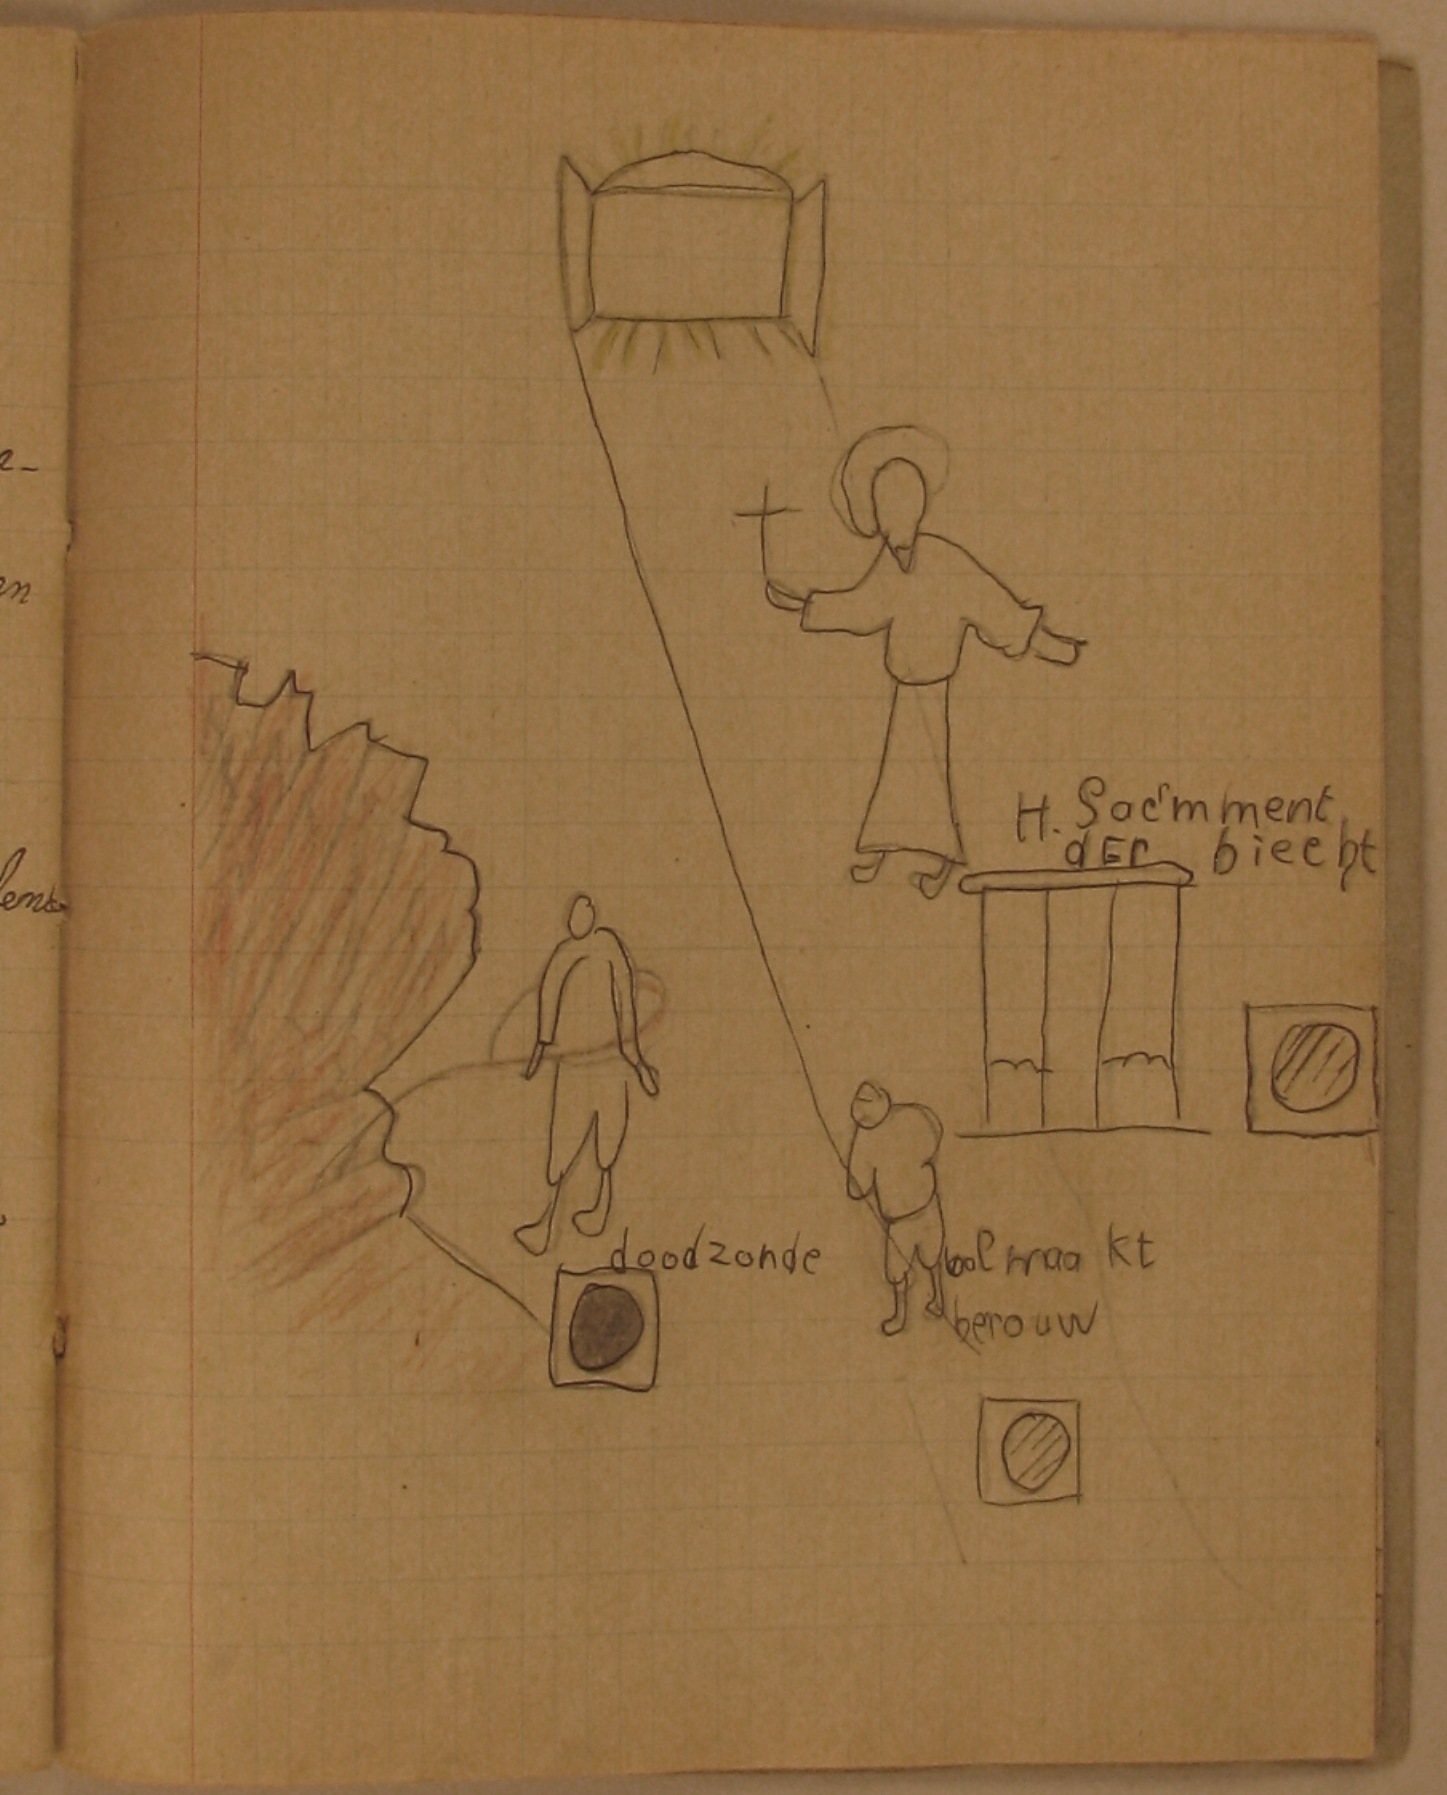 en
H. Sac'mment
dEr biecht
doodzonde
maakt
berouw